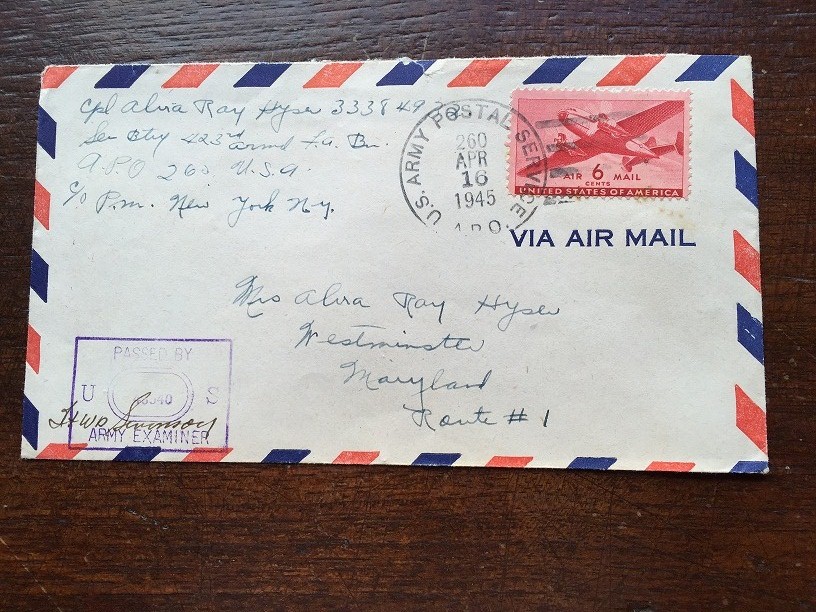 Cpl Alvia Ray Hyser 33384923
Ser Btry 423rd Armd F.A. Bn.
A.P.O 260 U.S.A.
c/o P.m. New York N.Y.
U.S. ARMY POSTAL SERVICE
260
APR
16
1945
A.P.O.
AIR 6 MAIL
CENTS
UNITED STATES OF AMERICA
VIA AIR MAIL
Mrs Alvia Ray Hyser
Westminster
Maryland
Route # 1
PASSED BY
U S
ARMY EXAMINER